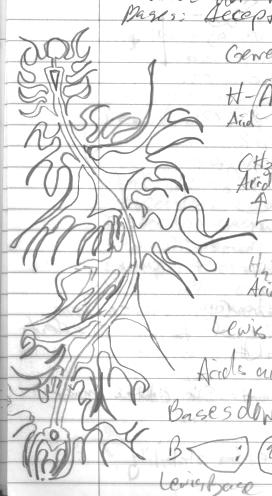 Bases: Accep
Gene
H-A
Acid
CH3
Acid
H2
Aci
Lewis
Acids a
Bases do
B :
Lewis Base